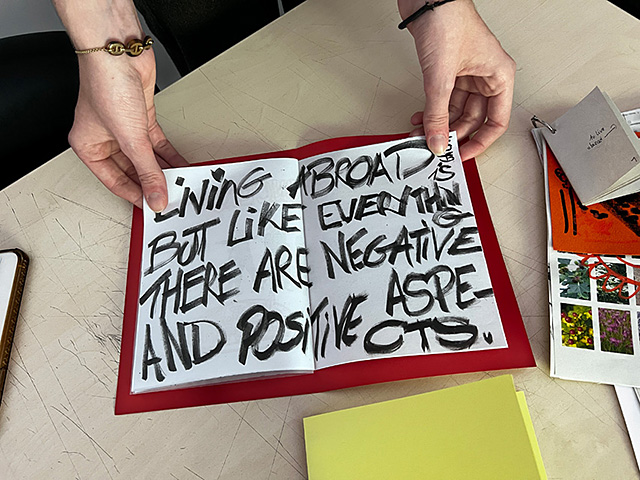 LiViNG ABROAD
BUT LiKE EVERYTHiNG
THERE ARE NEGATiVE
AND POSiTiVE ASPE-
CTS.
to live
abroad